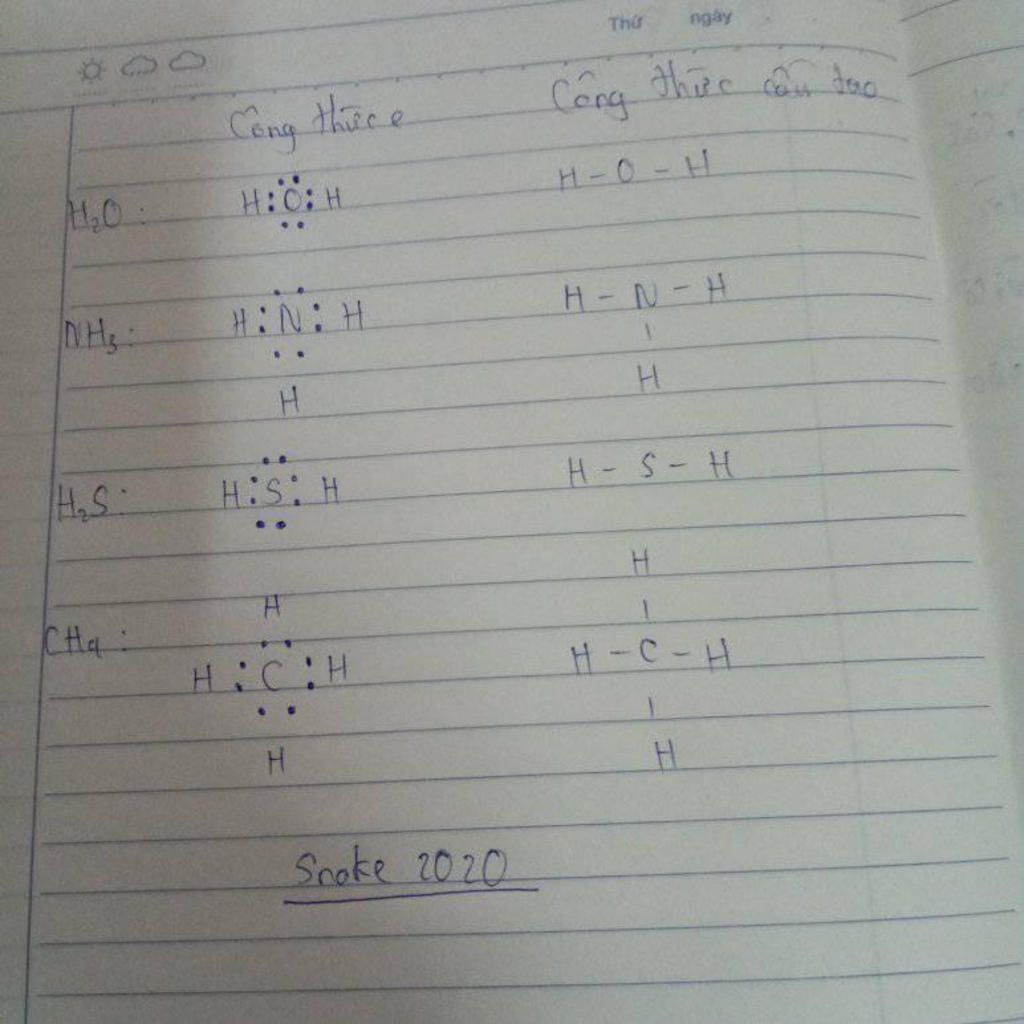 Thứ ngày
Công thức e Công thức cấu tạo
H₂O : H:O:H H-O-H
NH₃: H:N:H H-N-H
H H
H₂S: H:S:H H-S-H
H H
CH₄: H:C:H H-C-H
H H
Snake 2020